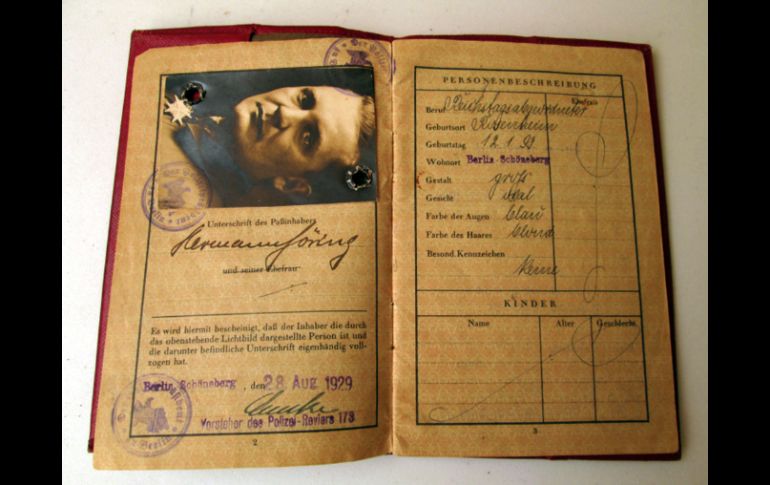 Unterschrift des Paßinhabers
Hermann Göring
und seiner Ehefrau
Es wird hiermit bescheinigt, daß der Inhaber die durch
das obenstehende Lichtbild dargestellte Person ist und
die darunter befindliche Unterschrift eigenhändig voll-
zogen hat.
Berlin Schöneberg, den 28 AUG 1929
Vorsteher des Polizei-Reviers 173
2
PERSONENBESCHREIBUNG
Ehefrau
Beruf Reichstagsabgeordneter
Geburtsort Rosenheim
Geburtstag 12.1.93
Wohnort Berlin-Schöneberg
Gestalt groß
Gesicht oval
Farbe der Augen blau
Farbe des Haares blond
Besond. Kennzeichen
keine
KINDER
Name Alter Geschlecht
3